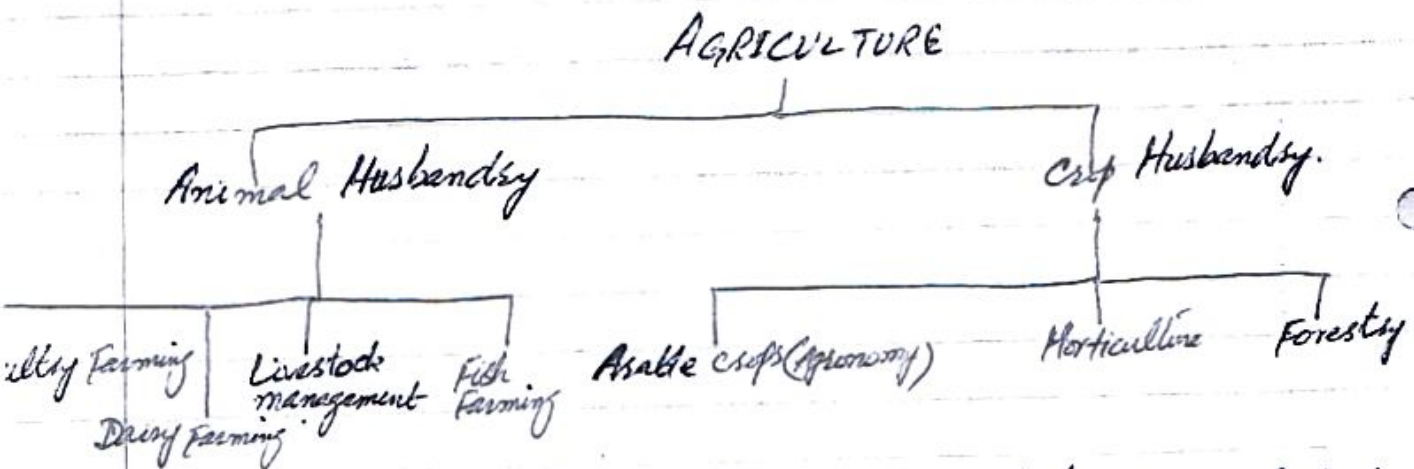 AGRICULTURE
Animal Husbandry
Crop Husbandry.
ultry Farming
Dairy Farming
Livestock
management
Fish
Farming
Arable crops (Agronomy)
Horticulture
Forestry